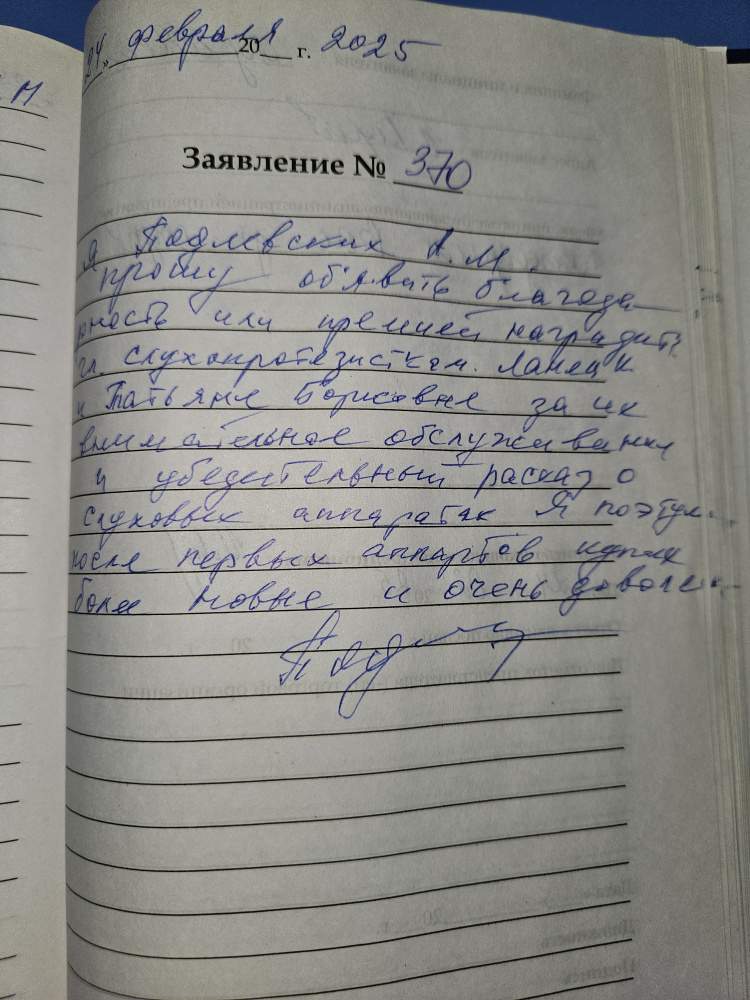 М
"24" февраля 20 г. 2025
Заявление № 370
Я Подлевских А.М.
прошу об'явить благода
рность или премией наградить
гл. слухопротезистком.
и Татьяне Борисовне за их
внимательное обслуживание
и убедительный расказ о
слуховых аппаратах Я поэтум
после первых аппартов купил
более новые и очень доволен